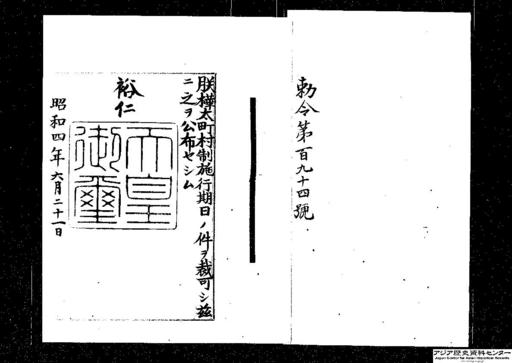 勅令第百九十四號
朕樺太町村制施行期日ノ件ヲ裁可シ茲
ニ之ヲ公布セシム
裕仁
天皇
御璽
昭和四年六月二十一日
アジア歴史資料センター
Japan Center for Asian Historical Records